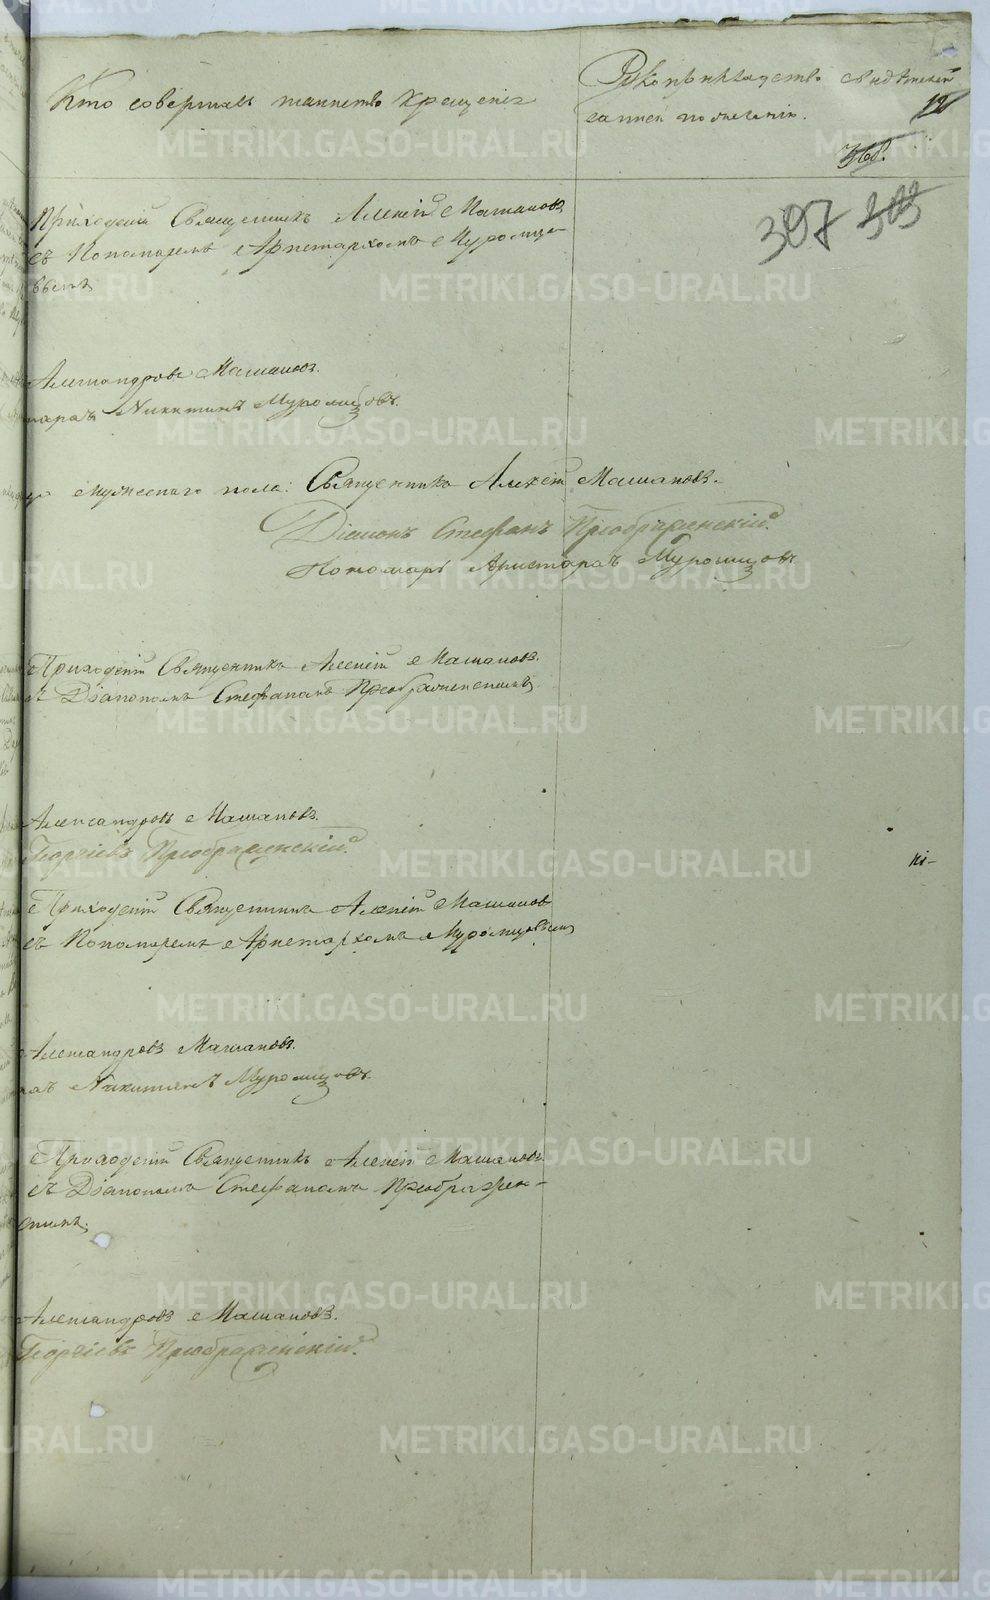 Кто совершалъ таинство крещенія
Рукоприкладство свидѣтелей
записи по желанію.
12
368.
397 393
Приходскій Священникъ Алексій Машановъ
съ Пономаремъ Аристархомъ Муромце-
вымъ
Александровъ Машановъ.
тархъ Никитинъ Муромцовъ.
мужескаго пола: Священникъ Алексій Машановъ.
Діаконъ Стефанъ Преображенскій.
Пономарь Аристархъ Муромцовъ.
Приходскій Священникъ Алексій Машановъ.
съ Діакономъ Стефаномъ Преображенскимъ
Александровъ Машановъ.
Георгіевъ Преображенскій.
Приходскій Священникъ Алексій Машановъ
съ Пономаремъ Аристархомъ Муромцовымъ
Александровъ Машановъ.
хъ Никитинъ Муромцовъ.
Приходскій Священникъ Алексій Машановъ
съ Діакономъ Стефаномъ Преображен-
скимъ.
Александровъ Машановъ.
Георгіевъ Преображенскій.
METRIKI.GASO-URAL.RU